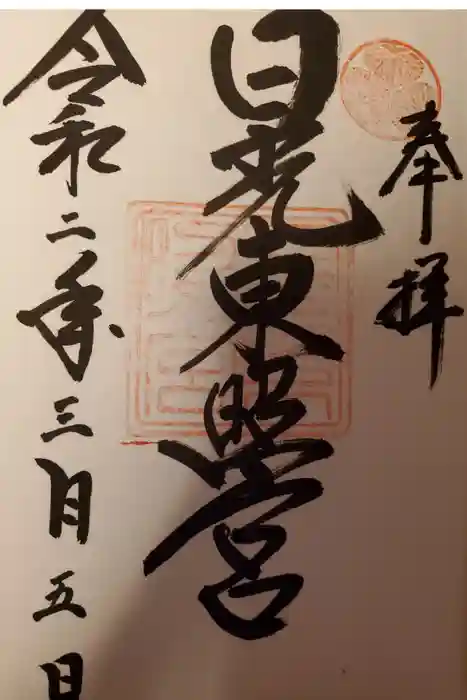 奉拝
日光東照宮
令和二年三月五日